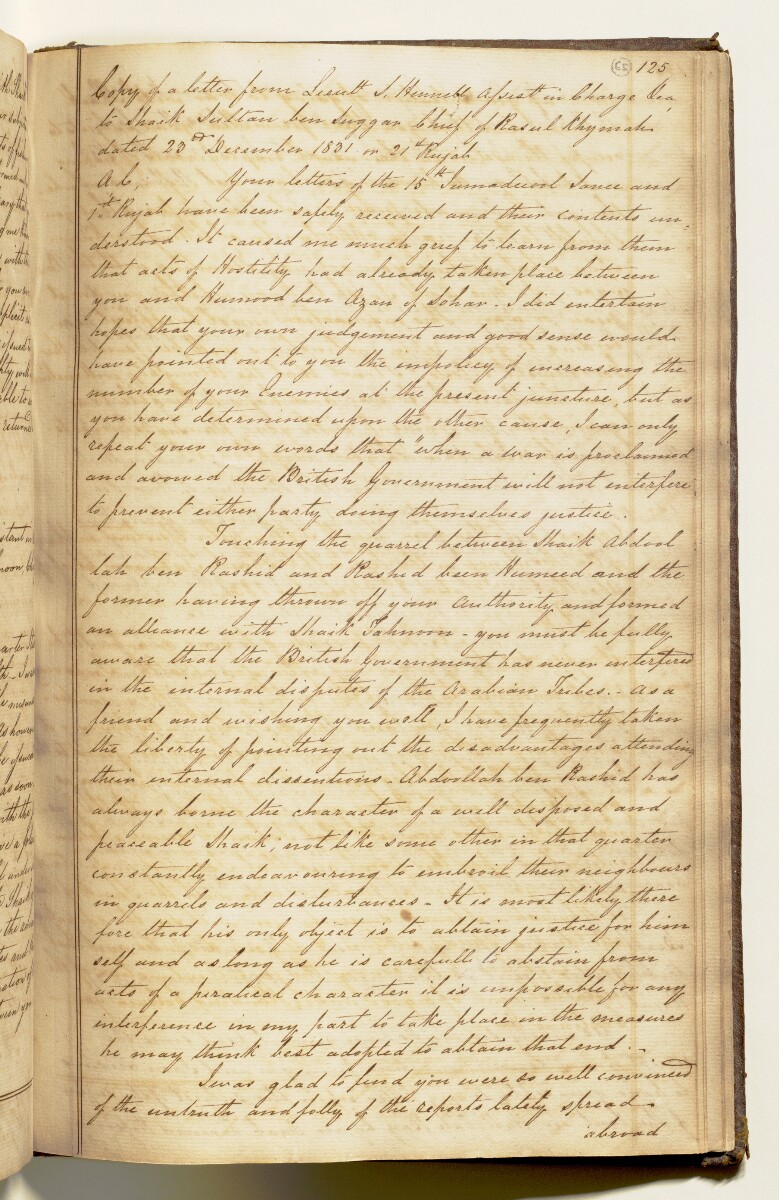 65 125
Copy of a letter from Lieutt S. Hennell Assist in Charge &ca
to Shaik Sultan ben Suggar Chief of Rasul Khymah
dated 23rd December 1831 or 21st Rujab
A. C., Your letters of the 15th Jumadeeool Sanee and
1st Rujab have been safely received and their contents un-
derstood. It caused me much grief to learn from them
that acts of Hostility had already taken place between
you and Humood ben Azan of Sohar. I did entertain
hopes that your own judgement and good sense would
have pointed out to you the impolicy of increasing the
number of your Enemies at the present juncture, but as
you have determined upon the other cause, I can only
repeat your own words that "when a war is proclaimed
and avowed the British Government will not interfere
to prevent either party doing themselves justice.
Touching the quarrel between Shaik Abdool
lah ben Rashid and Rashid been Humeed and the
former having thrown off your Authority and formed
an alliance with Shaik Tahnoon - you must be fully
aware that the British Government has never interfered
in the internal disputes of the Arabian Tribes. - As a
friend and wishing you well, I have frequently taken
the liberty of pointing out the disadvantages attending
their internal dissentions. Abdoollah ben Rashid has
always borne the character of a well disposed and
peaceable Shaik; not like some other in that quarter
constantly endeavouring to embroil their neighbours
in quarrels and disturbances - It is most likely there
fore that his only object is to obtain justice for him
self and as long as he is carefull to abstain from
acts of a piratical character it is impossible for any
interference in my part to take place in the measures
he may think best adopted to obtain that end. -
I was glad to find you were so well convinced
of the untruth and folly of the reports lately spread
abroad